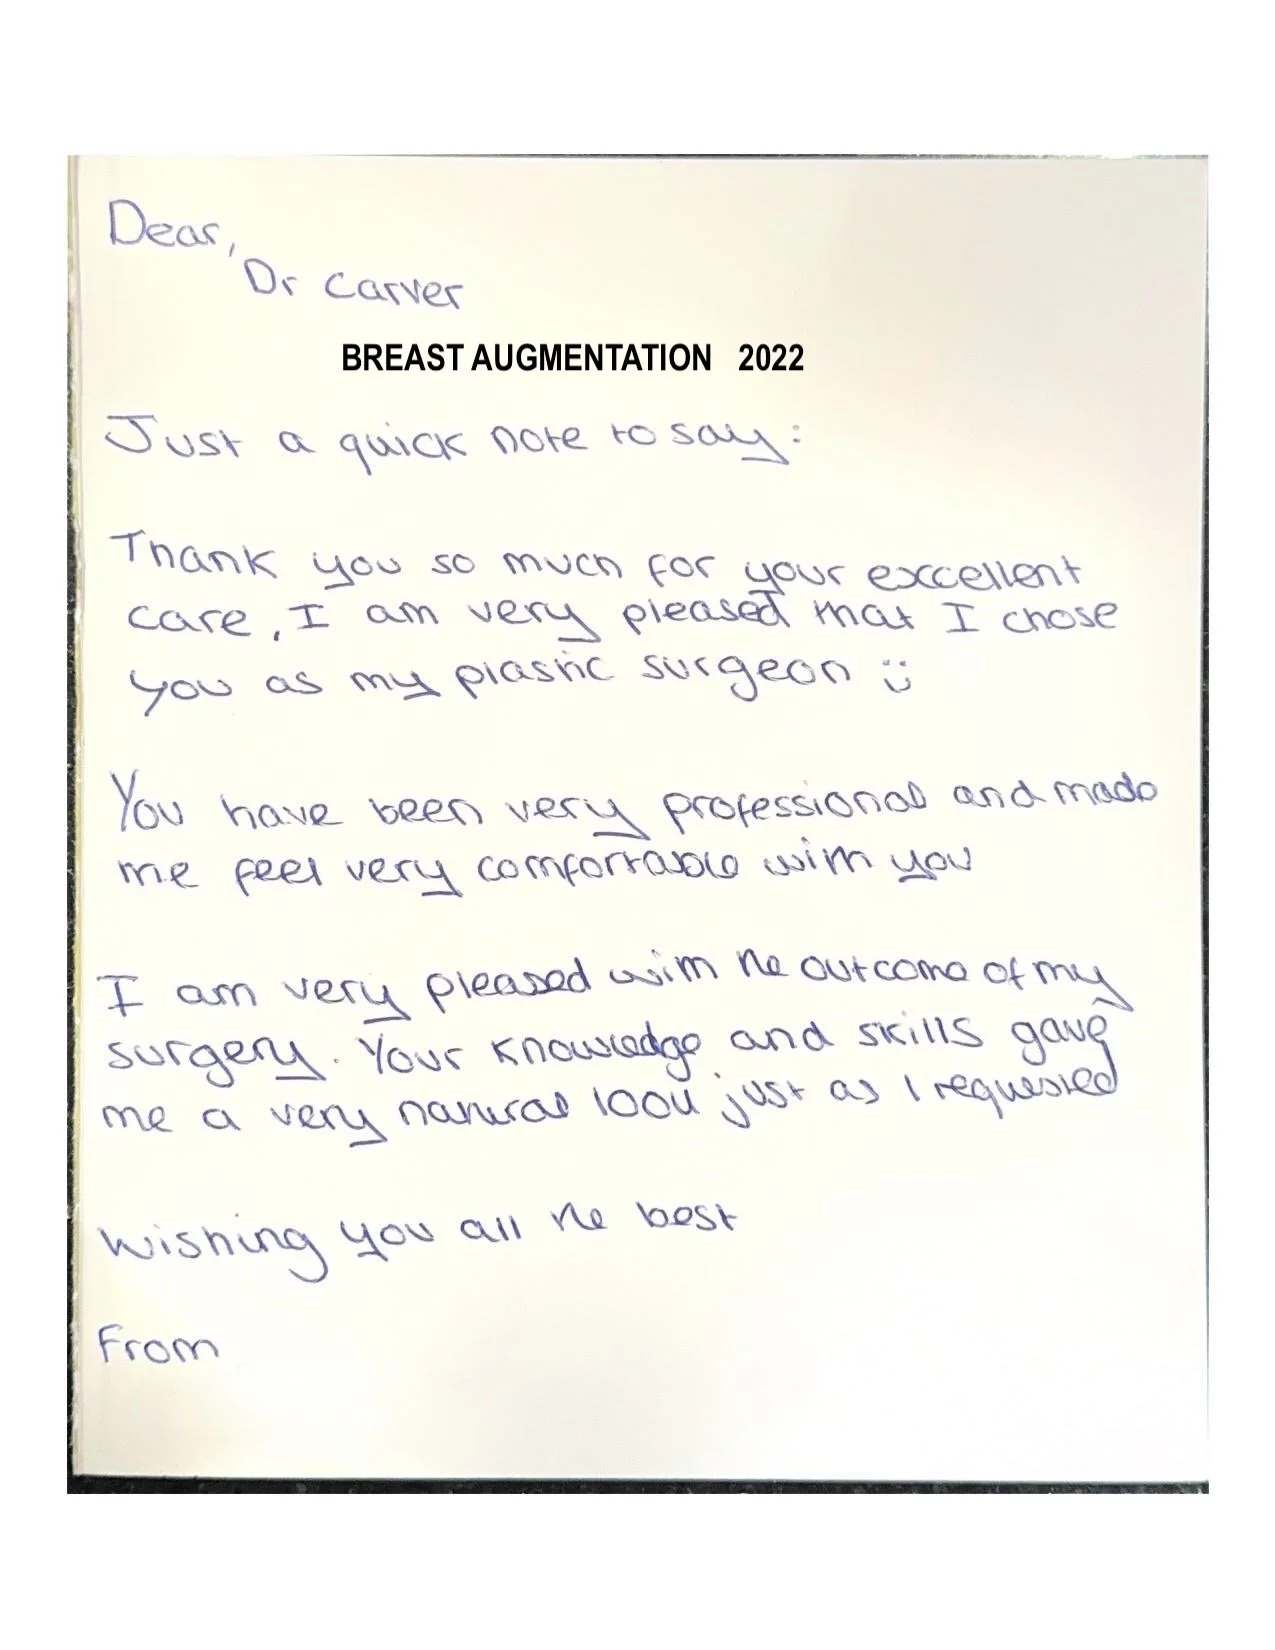 Dear,
Dr Carver
BREAST AUGMENTATION 2022
Just a quick note to say:
Thank you so much for your excellent
care, I am very pleased that I chose
you as my plastic surgeon ü
You have been very professional and made
me feel very comfortable with you
I am very pleased with the outcome of my
surgery. Your knowledge and skills gave
me a very natural look just as I requested
Wishing you all the best
From